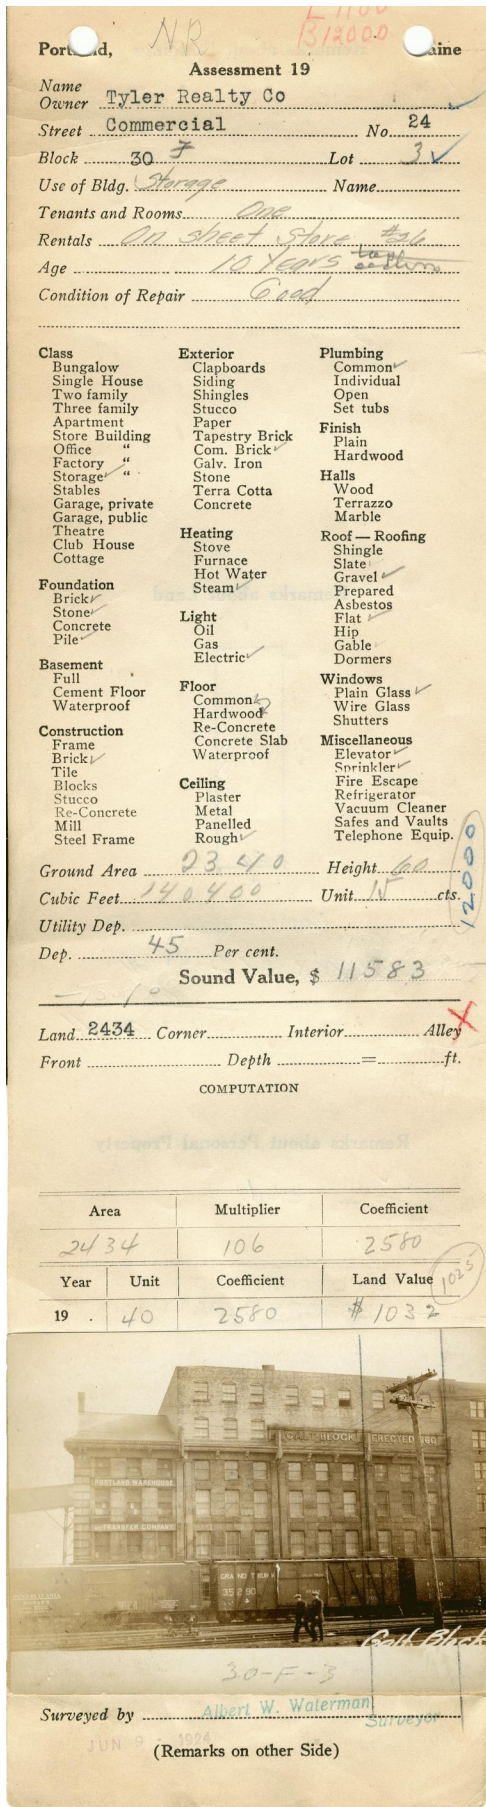 NR
L 1100
B 12000
Portland, Maine
Assessment 19
Name
Owner Tyler Realty Co
Street Commercial No. 24
Block 30 F Lot 3
Use of Bldg. Storage Name
Tenants and Rooms One
Rentals On sheet Store #26
Age 10 Years
Condition of Repair Good
Class
Bungalow
Single House
Two family
Three family
Apartment
Store Building
Office "
Factory "
Storage "
Stables
Garage, private
Garage, public
Theatre
Club House
Cottage
Foundation
Brick
Stone
Concrete
Pile
Basement
Full
Cement Floor
Waterproof
Construction
Frame
Brick
Tile
Blocks
Stucco
Re-Concrete
Mill
Steel Frame
Exterior
Clapboards
Siding
Shingles
Stucco
Paper
Tapestry Brick
Com. Brick
Galv. Iron
Stone
Terra Cotta
Concrete
Heating
Stove
Furnace
Hot Water
Steam
Light
Oil
Gas
Electric
Floor
Common
Hardwood
Re-Concrete
Concrete Slab
Waterproof
Ceiling
Plaster
Metal
Panelled
Rough
Plumbing
Common
Individual
Open
Set tubs
Finish
Plain
Hardwood
Halls
Wood
Terrazzo
Marble
Roof — Roofing
Shingle
Slate
Gravel
Prepared
Asbestos
Flat
Hip
Gable
Dormers
Windows
Plain Glass
Wire Glass
Shutters
Miscellaneous
Elevator
Sprinkler
Fire Escape
Refrigerator
Vacuum Cleaner
Safes and Vaults
Telephone Equip.
Ground Area 2340 Height 60
Cubic Feet 140400 Unit 15 cts.
12000
Utility Dep.
Dep. 45 Per cent.
Sound Value, $ 11583
Land 2434 Corner Interior Alley X
Front Depth = ft.
COMPUTATION
Area Multiplier Coefficient
2434 106 2580
Year Unit Coefficient Land Value 1025
19 . 40 2580 $ 1032
GALT BLOCK ERECTED
PORTLAND WAREHOUSE
TRANSFER COMPANY
GRAND TRUNK
35290
Galt Block
30-F-3
Surveyed by Albert W. Waterman
Surveyor
JUN 9 1924
(Remarks on other Side)